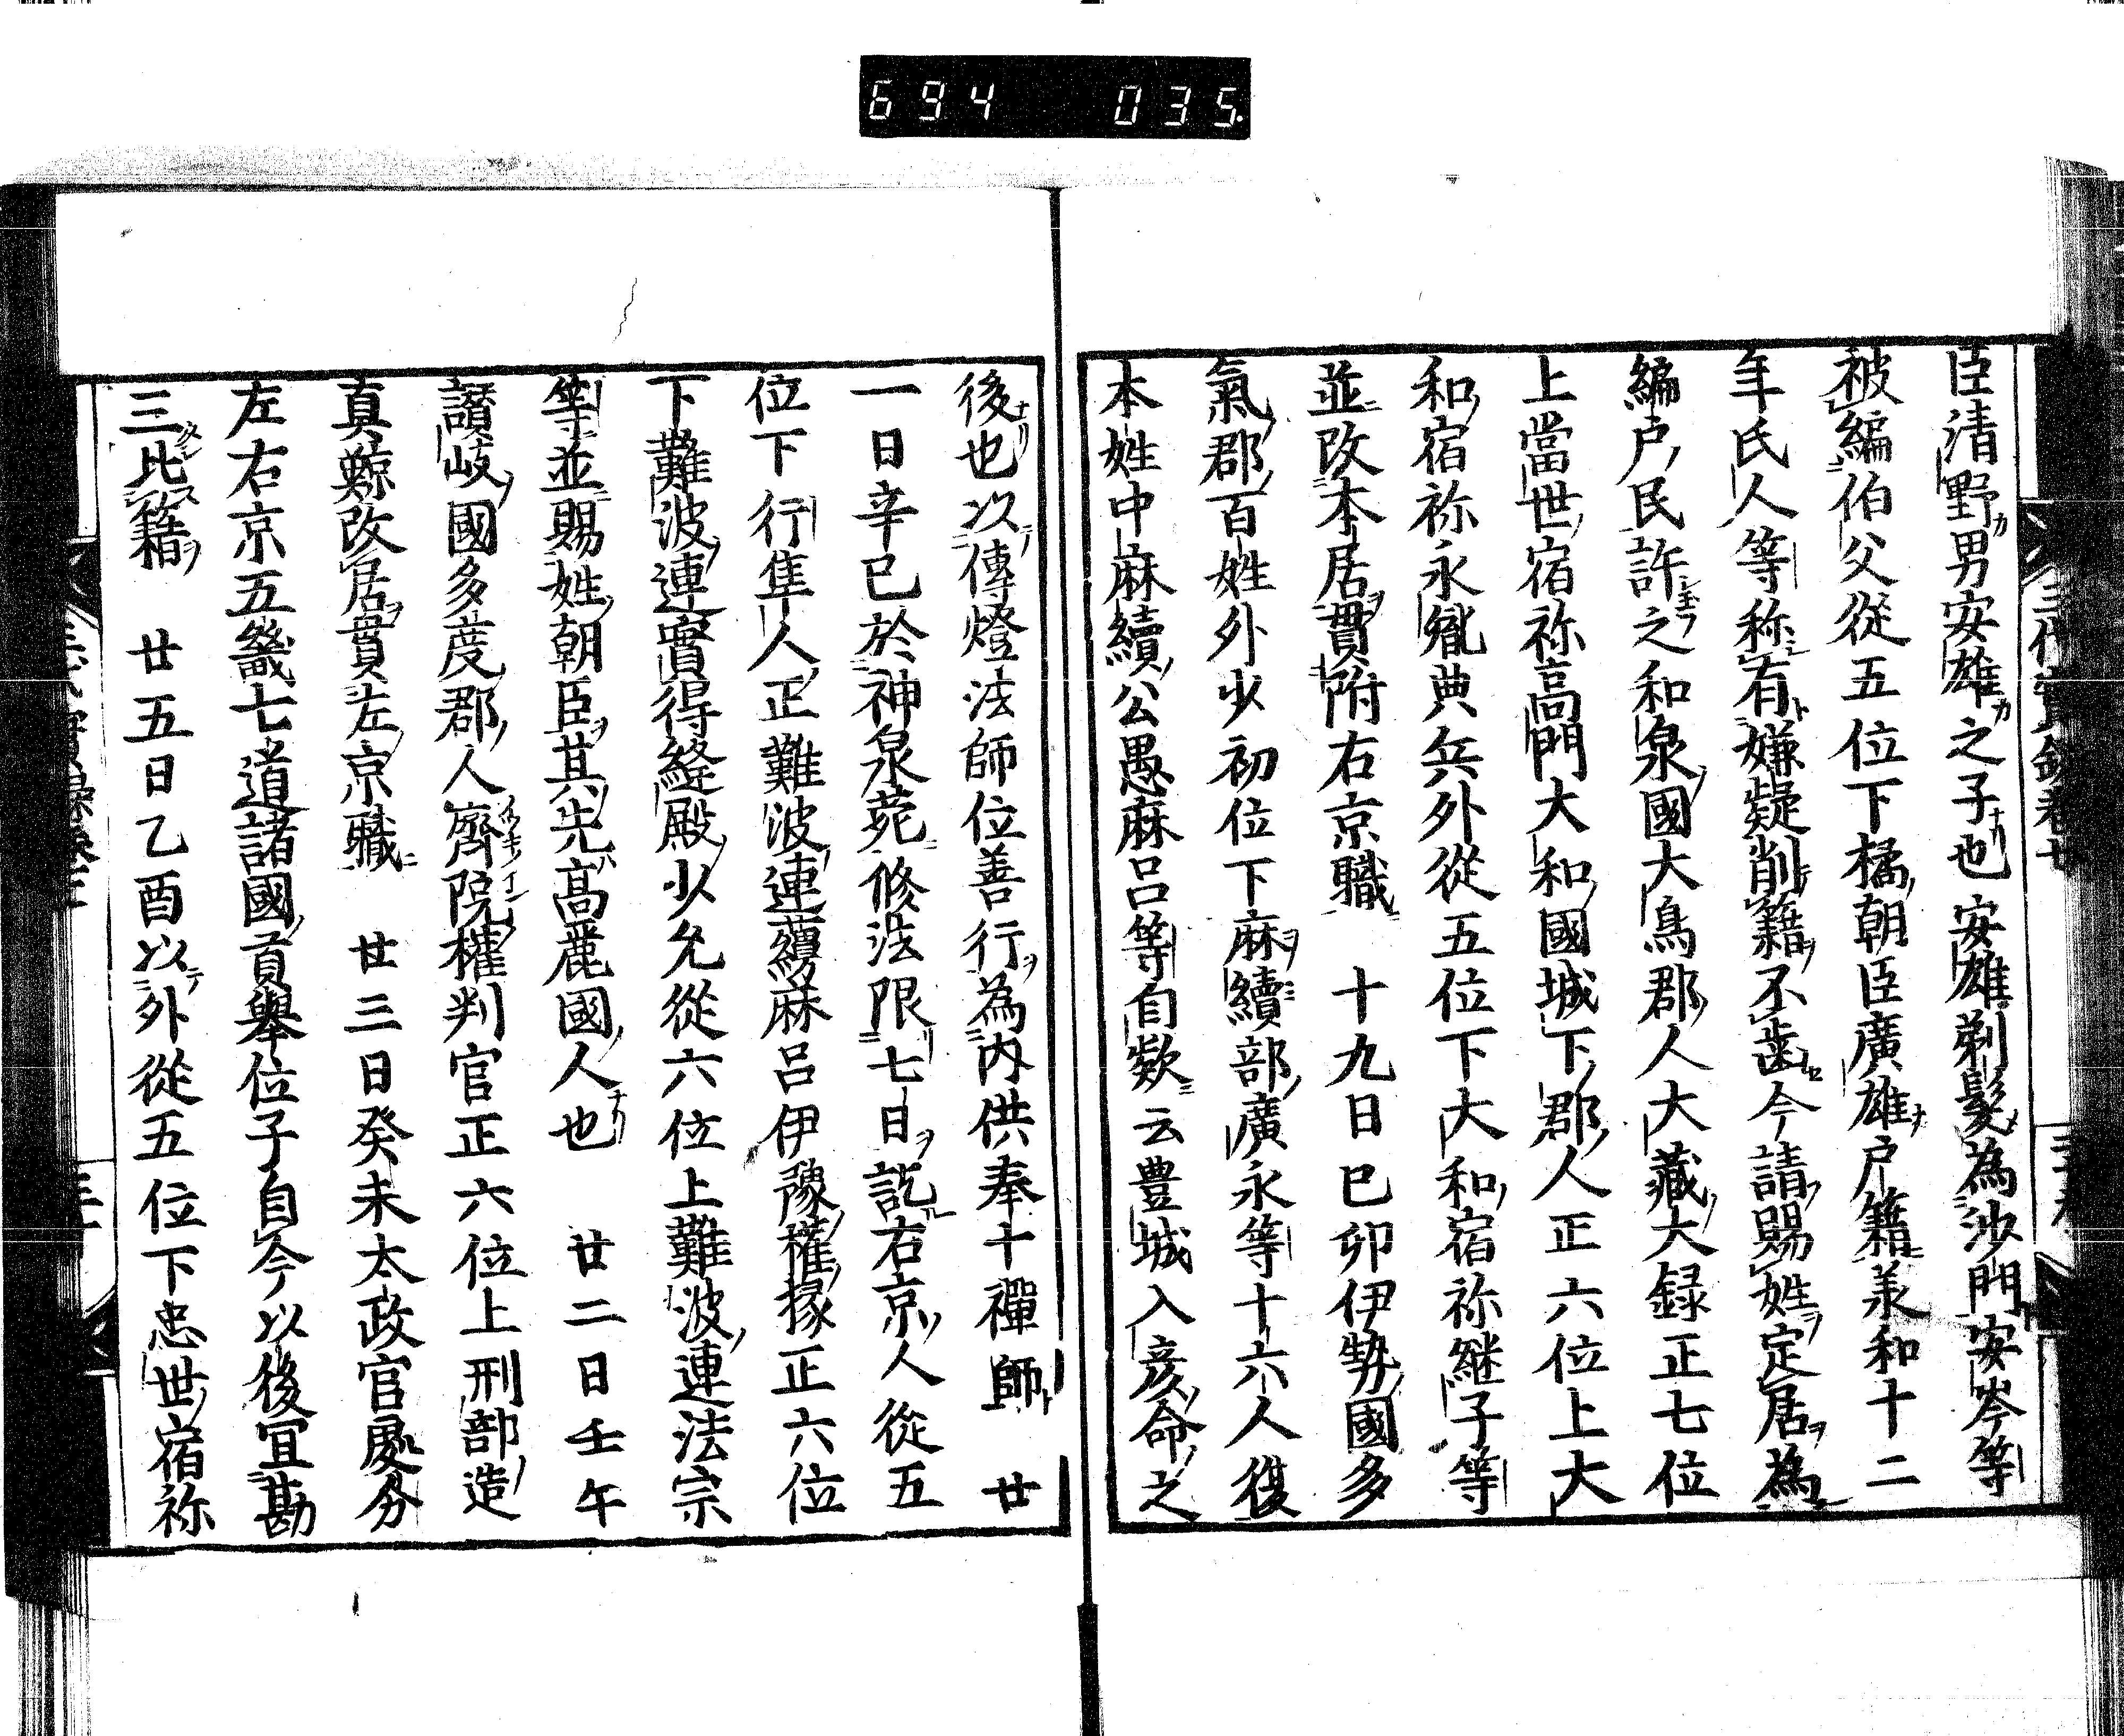 694 035
臣清野男安雄之子也安雄剃髮為沙門安岑等
被編伯父從五位下橘朝臣廣雄户籍兼和十二
年氏人等称有嫌疑削籍不歯今請賜姓定居為
編户民許之和泉國大鳥郡人大藏大録正七位
上當世宿祢高門大和國城下郡人正六位上大
和宿祢永典兵外從五位下大和宿祢継子等
並改本居貫附右京職 十九日巳卯伊勢國多
氣郡百姓外少初位下麻續部廣永等十六人復
本姓中麻續公愚麻呂等自欵云豊城入彦命之
後也以傳燈法師位善行為内供奉十禪師 廿
一日辛巳於神泉苑修法限七日訖右京人從五
位下行隼人正難波連蘰麻呂伊豫權掾正六位
下難波連實得縫殿少允從六位上難波連法宗
等並賜姓朝臣其先高麗國人也 廿二日壬午
讃岐國多度郡人齋院權判官正六位上刑部造
真鯨改居貫左京職 廿三日癸未太政官處分
左右京五畿七道諸國貢舉位子自今以後宜勘
三比籍 廿五日乙酉以外從五位下忠世宿祢